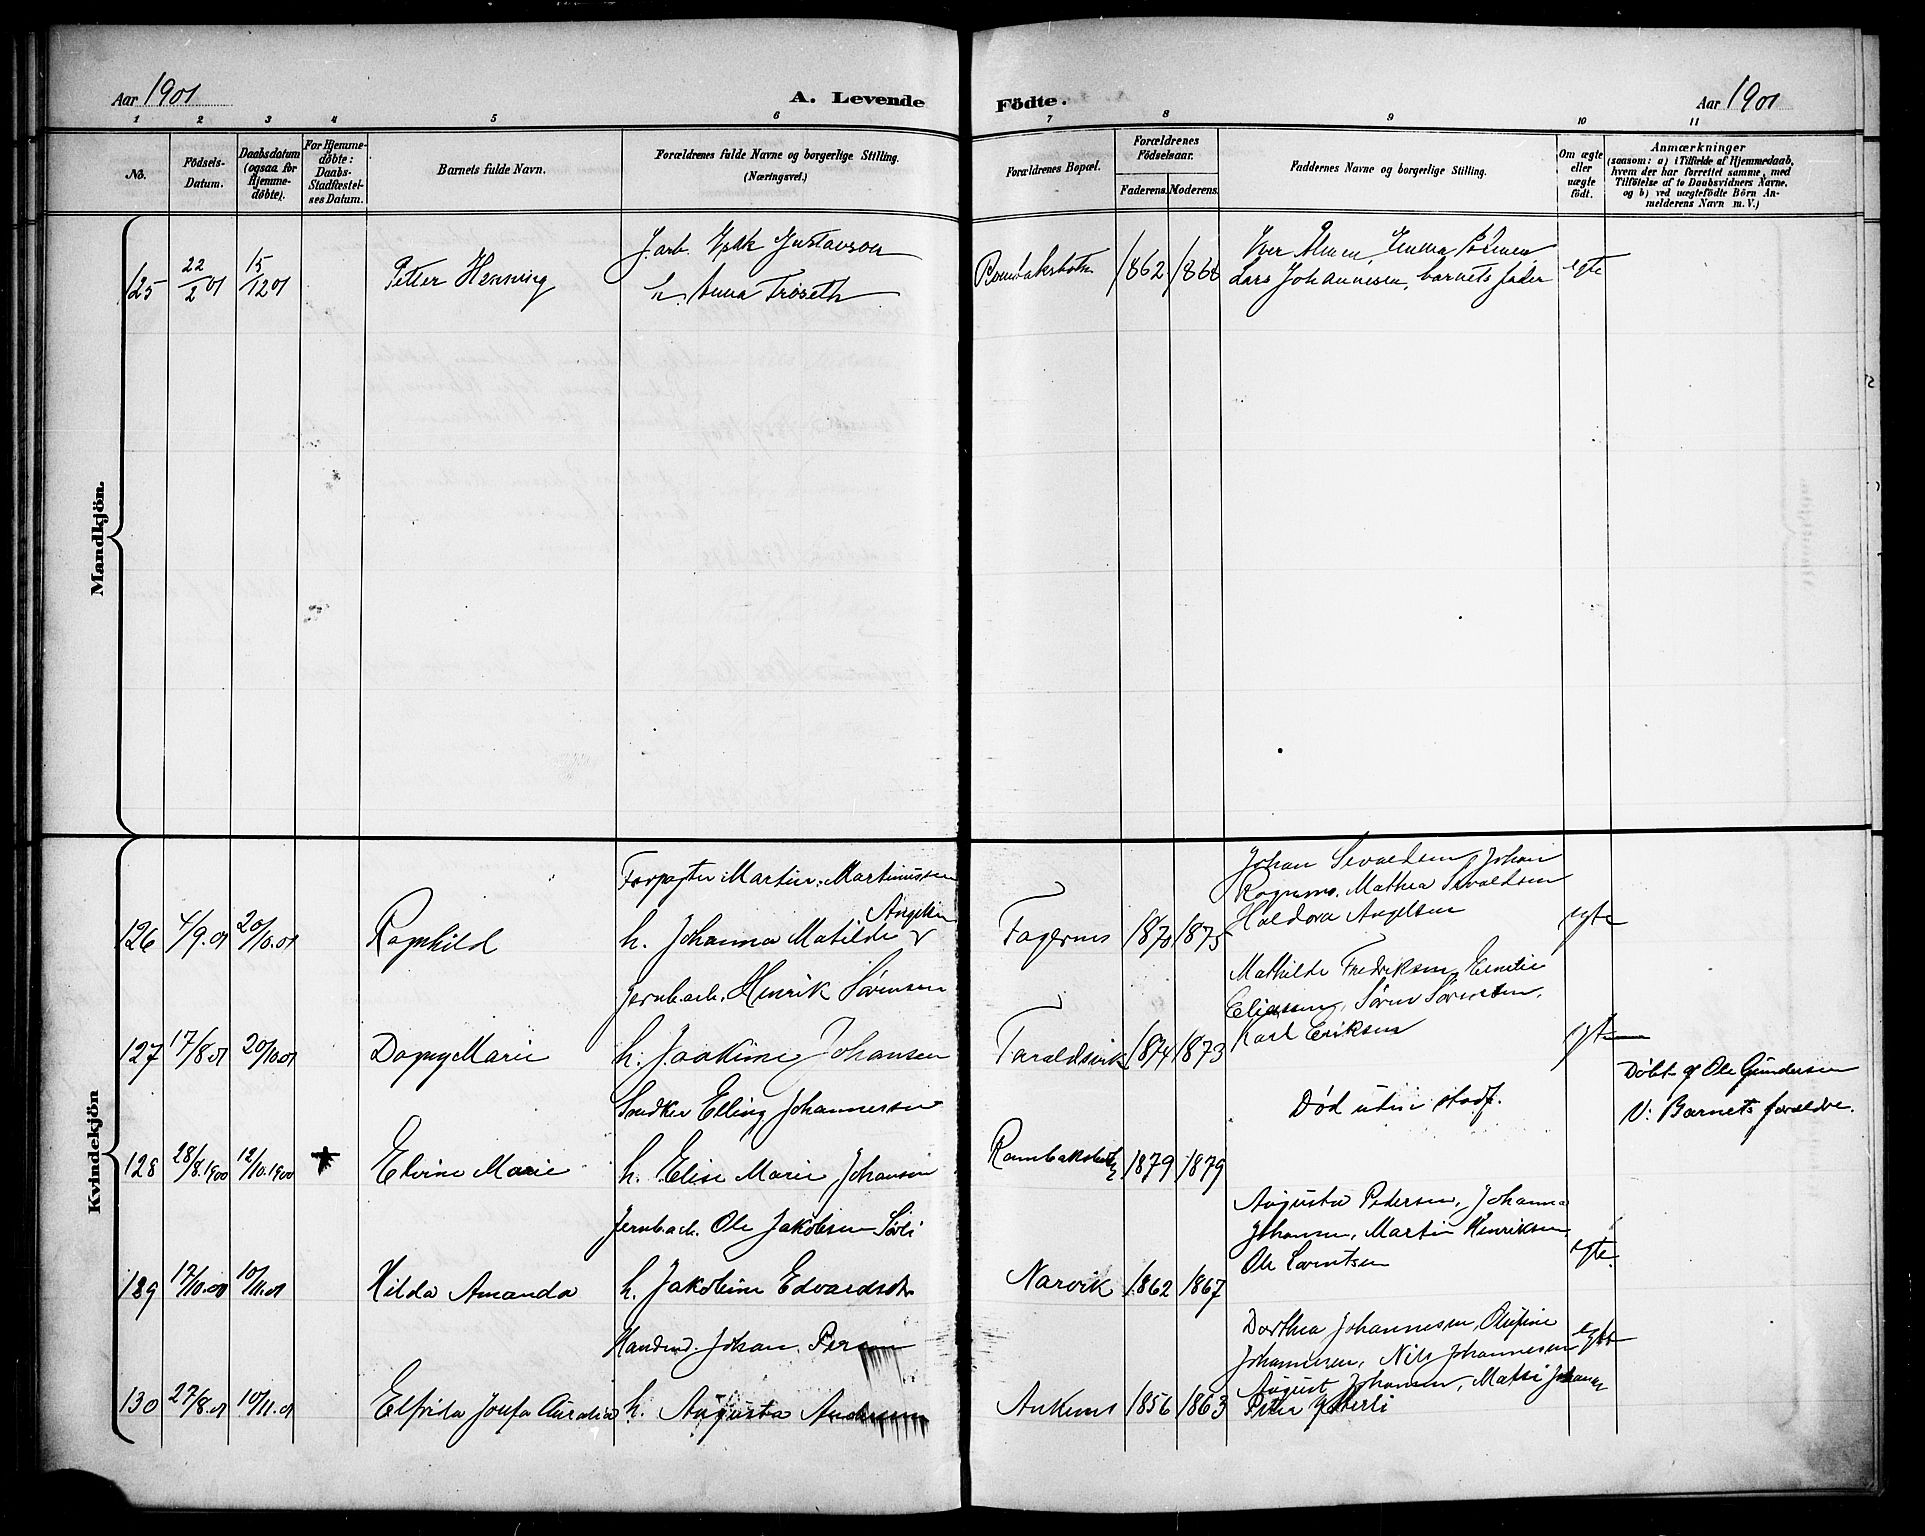 Aar 1901
A. Levende
Födte.
Aar 1901
1 2 3 4 5 6 7 8 9 10 11
No.
Födsels-
Datum.
Daabsdatum
(ogsaa for
Hjemme-
döbte).
For Hjemme-
döbte:
Daabs-
Stadfæstel-
ses Datum.
Barnets fulde Navn.
Forældrenes fulde Navne og borgerlige Stilling.
(Næringsvei.)
Forældrenes Bopæl.
Forældrenes
Födselsaar.
Faderens. Moderens.
Faddernes Navne og borgerlige Stilling.
Om ægte
eller
uægte
födt.
Anmærkninger
(saasom: a) i Tilfælde af Hjemmedaab,
hvem der har forrettet samme, med
Tilföielse af to Daabsvidners Navne,
og b) ved uægtefödte Börn An-
melderens Navn m. V.)
Mandkjön.
125
22/2 01
15/12 01
Petter Henning
J.arb. Gustavson
h. Anna Troseth
Rombaksbotn
1862
1868
Lars Johannesen, barnets fader
egte
Kvindekjön
126
4/9.01
20/10.01
Ragnhild
Forpagter Martin Martinussen
h. Johanna Matilde Angelsen
Fagernes
1870
1875
Johan Sivaldsen, Johan
Mathea Sivaldsen
Haldora Angelsen
egte
127
17/8 01
20/10 01
Dagny Marie
Jernb.arb. Henrik Sörensen
h. Joakime Johansen
Taraldsvik
1874
1873
Mathilde Fredriksen, Emilie
Eliassen, Sören Sörensen,
Karl Eriksen
egte
128
28/8.1900
12/10.1900
Elvine Marie
Snedker Elling Johannessen
h. Elise Marie Johansen
Rombaksbotn
1879
1879
Död uden stadf.
Döbt af Ole Gundersen
V: Barnets forældre.
129
17/10.01
10/11.01
Hilda Amanda
Jernb.arb. Ole Jakobsen Sörli
h. Jakobine Edvardsdtr
Narvik
1862
1867
Augusta Pedersen, Johanna
Johansen, Martin Henriksen
Ole Lorentsen
egte.
130
27/8.01
10/11.01
Elfrida Josefa Aurelia
Handm. Johan Person
h. Augusta Andersen
Ankenes
1856
1863
Dorthea Johannesen, Olufine
Johannesen, Nils Johannesen
August Johansen,
egte